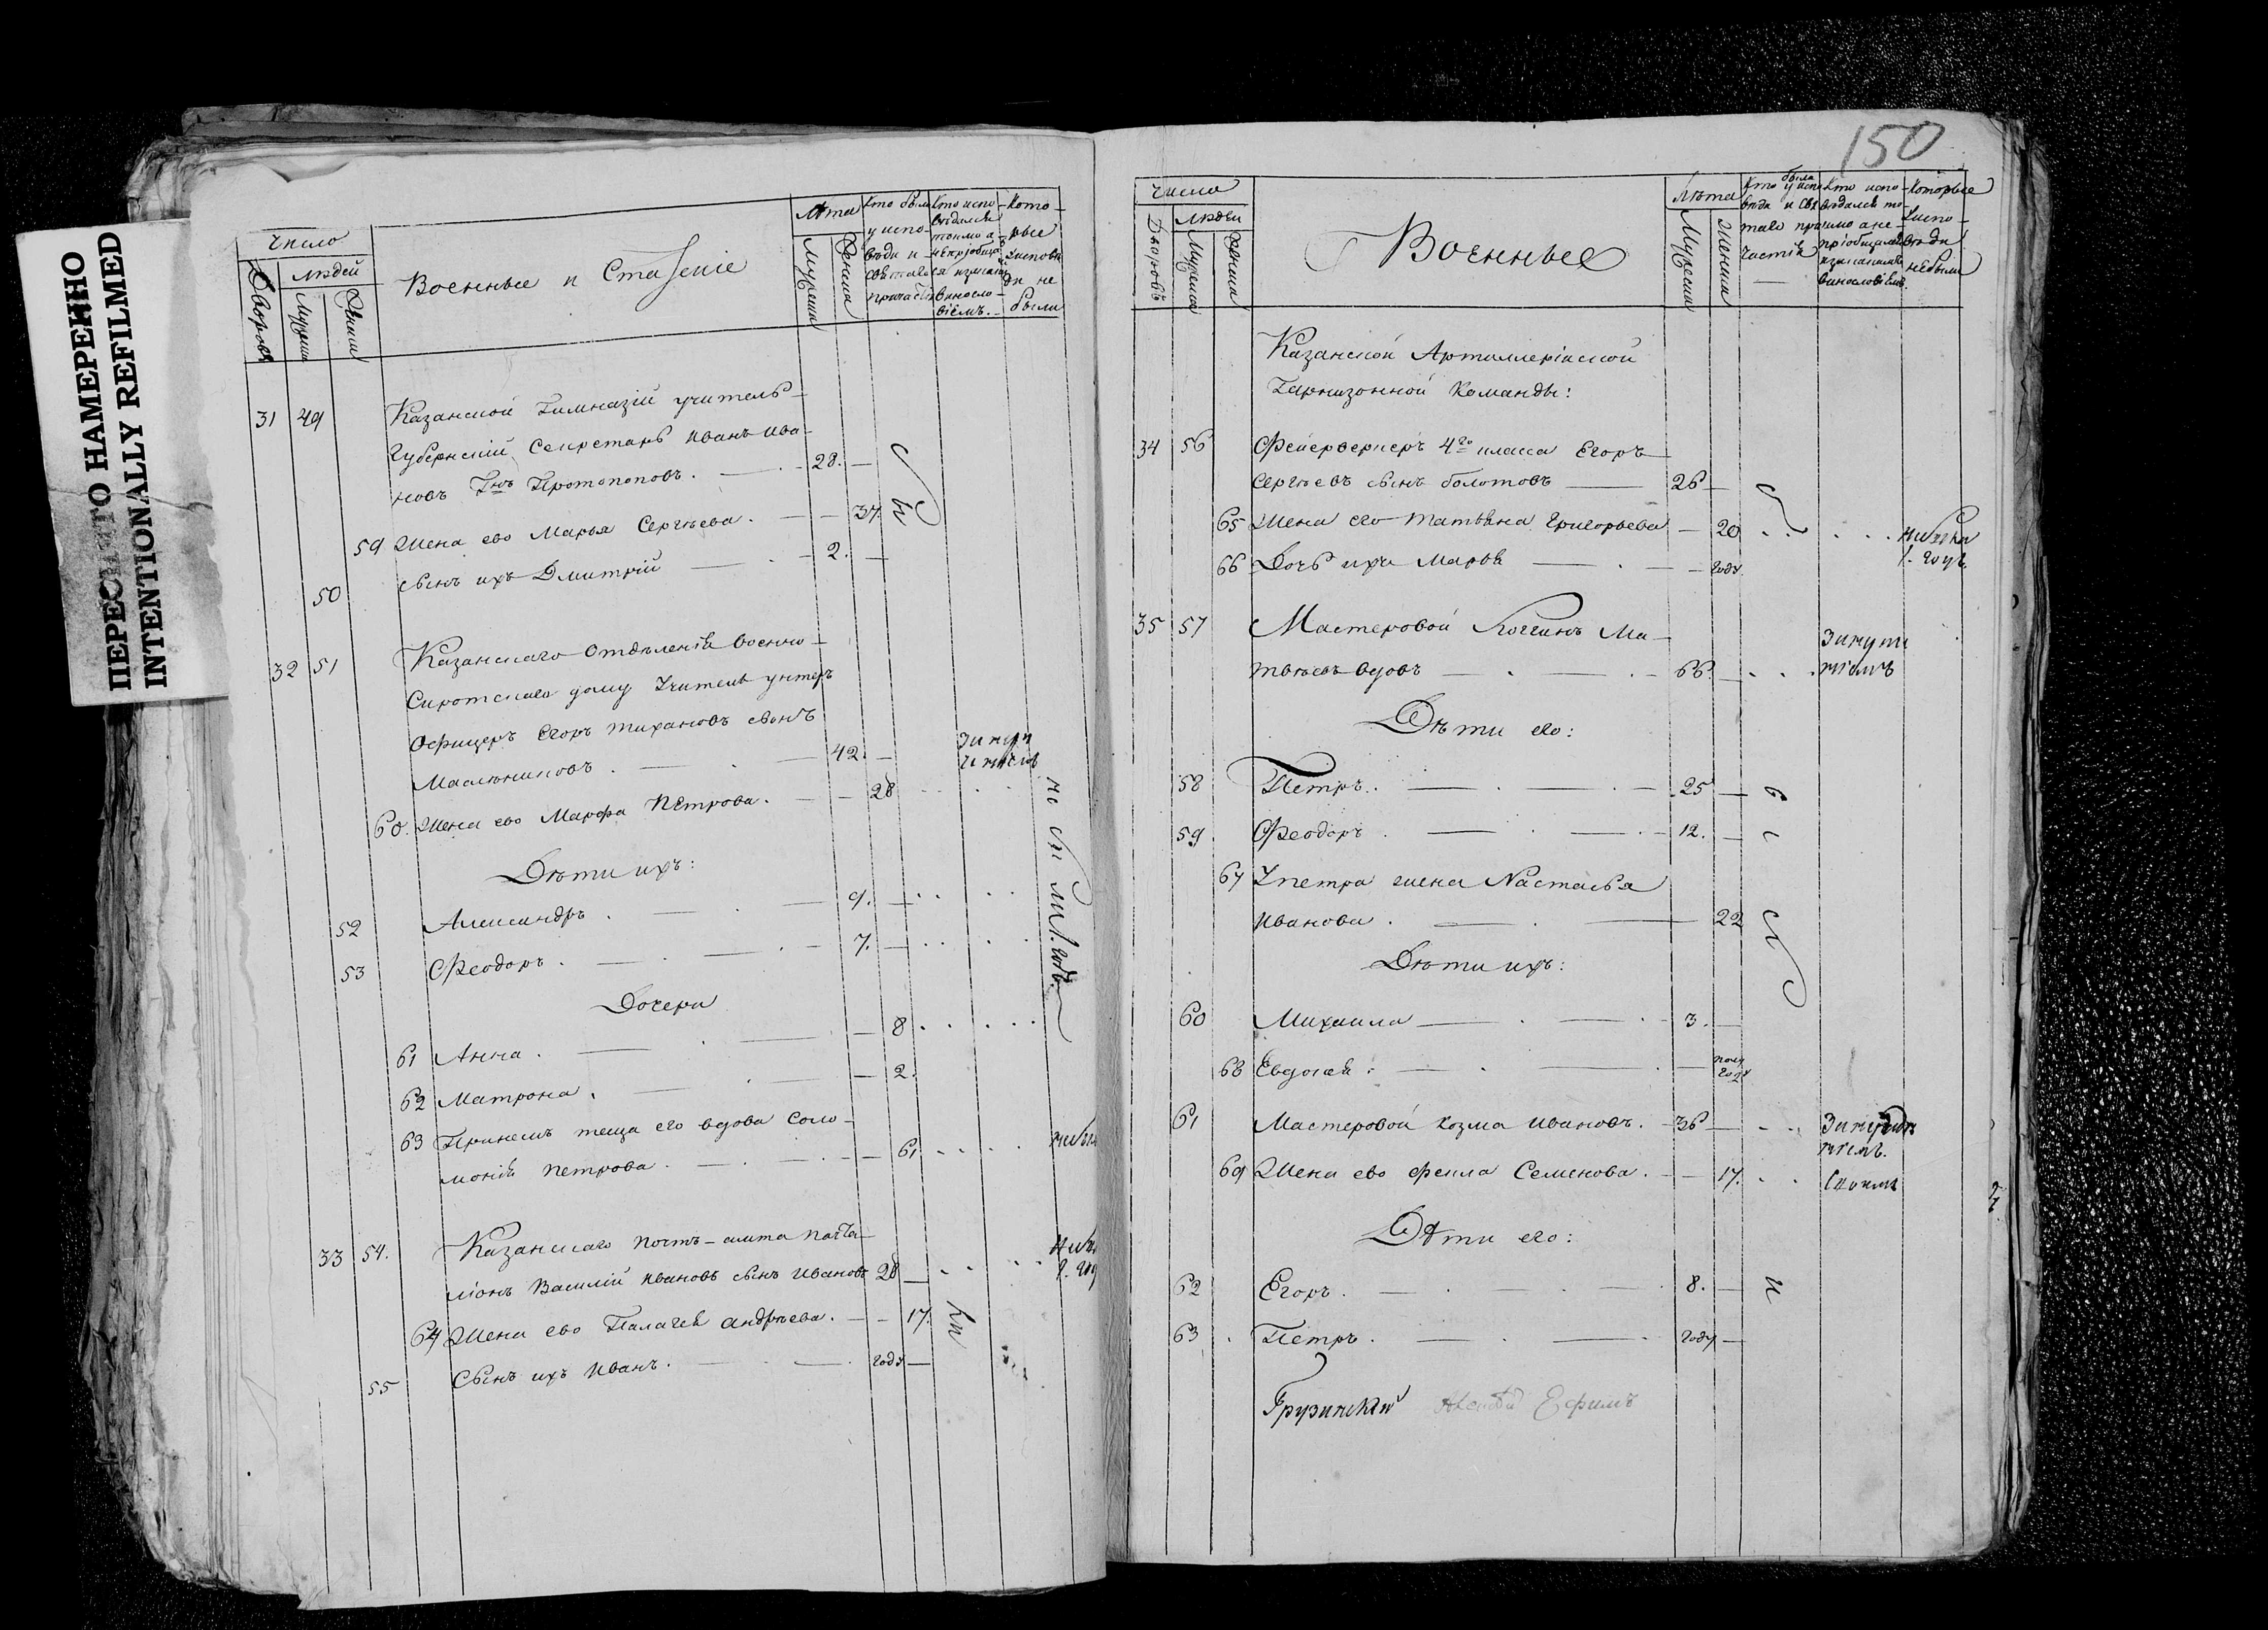 ПЕРЕСНЯТО НАМЕРЕННО
INTENTIONALLY REFILMED
Число
Дворовъ
людей
Мужеска
Женска
Военные и Статскіе
Лѣта
Мужеска
Женска
Кто были
у испо-
вѣди и
святаго
причастія
Кто испо-
вѣдался
токмо а
не пріобщал
ся
виносло-
віемъ.
Кото-
рые
у исповѣ
ди не
были
31 49 Казанской Гимназіи учитель
Губернскій Секретарь Иванъ Ива-
новъ Гнъ Протопоповъ. 28.
59 Жена ево Марья Сергѣева. 37.
50 сынъ ихъ Дмитрій 2.
32 51 Казанскаго Отдѣленія военно-
Сиротскаго дому Учитель унтеръ
Офицеръ Егоръ Тихановъ сынъ
Маслениковъ. 42.
60. Жена ево Марфа Петрова. 28
Дѣти ихъ:
52 Александръ. 9.
53 Феодоръ. 7.
1. годъ
Дочери
61 Анна. 8
62 Матрона. 2.
63 При немъ теща его вдова Соло-
монія Петрова. 61
33 54. Казанскаго Почтъ-амта почта-
ліонъ Василій Ивановъ сынъ Ивановъ 28
64 Жена ево Палагея Андрѣева. 17.
55 Сынъ ихъ Иванъ. году
150
Число
Дворовъ
Людей
Мужеска
Женска
Военные
Лѣта
Мужеска
Женска
Кто были
у испо-
вѣди и свя
таго при
частія
Кто испо-
вѣдался то-
кмо а не
пріобщился
виносло­віемъ
Которые
у испо-
вѣди
не были
Казанской Артиллерійской
Гарнизонной Команды:
34 56 Фейерверкеръ 4го класса Егоръ
Сергѣевъ сынъ Болотовъ 26
65 Жена его Татьяна Григорьева 20
66 Дочь ихъ Марья году
1. годъ
35 57 Мастеровой Ма-
твѣевъ вдовъ 66.
Дѣти его:
58 Петръ. 25
59. Феодоръ. 12.
67 У Петра жена Настасья
Иванова. 22
Дѣти ихъ:
60 Михаила 3.
68 Евдокея. полу
году
61 Мастеровой Козма Ивановъ. 36
69 Жена ево Фекла Семенова. 17.
Дѣти его:
62 Егоръ. 8.
63 Петръ. году
Грузинскій Ефимъ